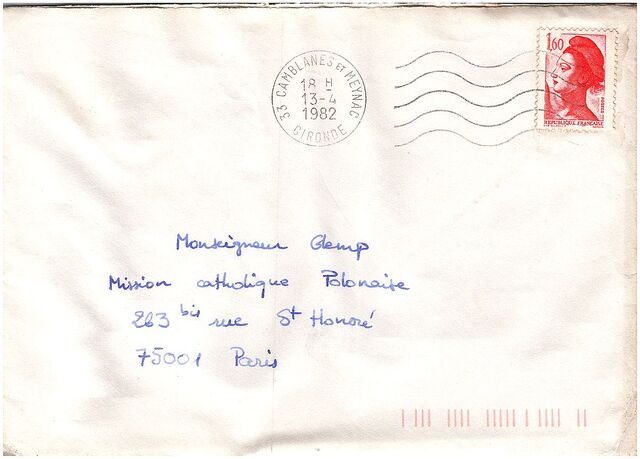 33 CAMBLANES ET MEYNAC
18 H
13-4
1982
GIRONDE
1,60
POSTES
REPUBLIQUE FRANÇAISE
Monseigneur Glemp
Mission catholique Polonaise
263 bis rue St Honoré
75001 Paris